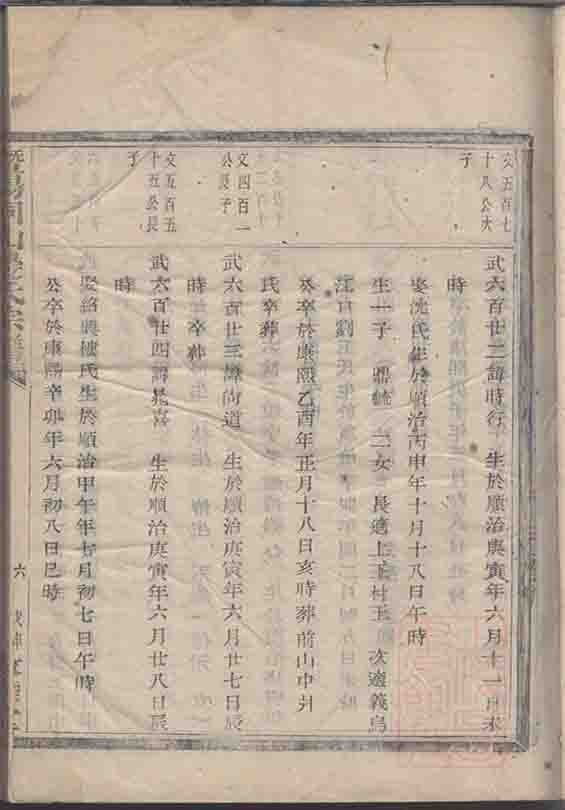 文五百七
十八公大
子
武六百廿二諱時行 生於順治庚寅年六月十一日未
時
娶沈氏生於順治丙申年十月十八日午時
生一子 鼎 二女 長適上王村王 次適義烏
江口劉
公卒於康熙乙酉年正月十八日亥時葬前山中爿
氏卒葬
文四百一
公長子
武六百廿三諱尚道 生於順治庚寅年六月廿七日辰
時 卒葬
文五百五
十五公長
子
武六百廿四諱 喜 生於順治庚寅年六月廿八日辰
時
娶紹興樓氏生於順治甲午年七月初七日午時
公卒於康熙辛卯年六月初八日巳時
宗譜
六